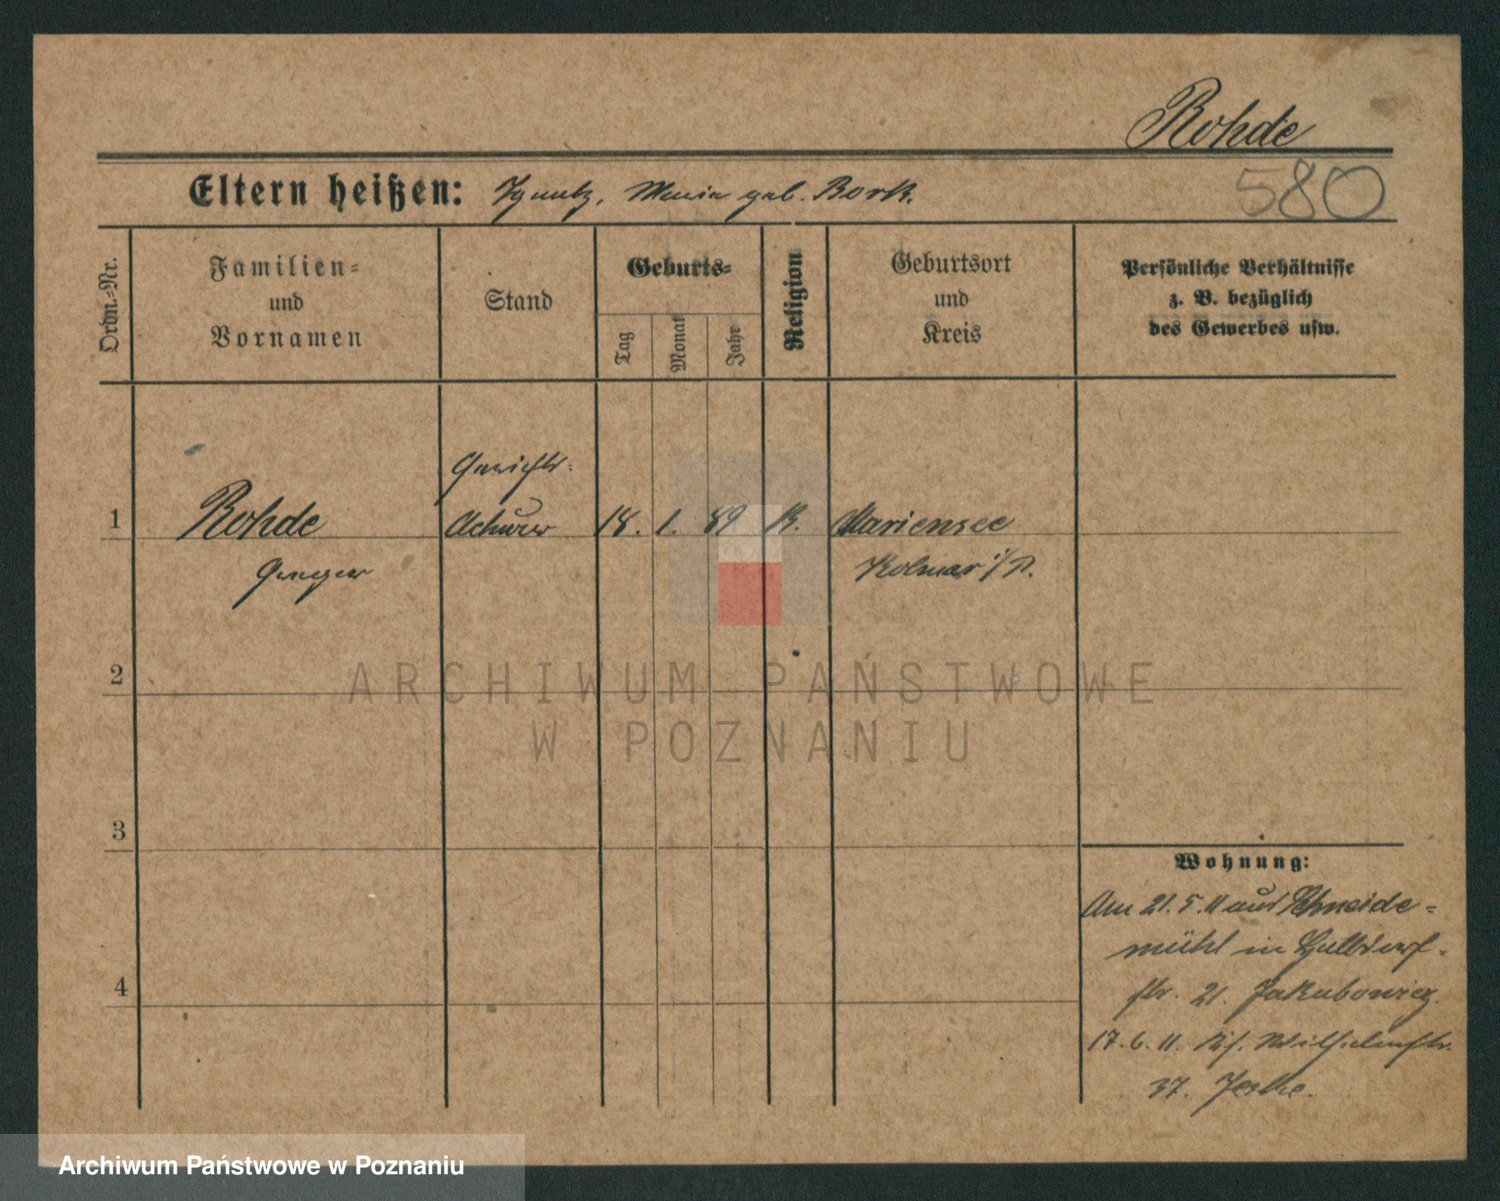 Rohde
Eltern heißen: Ignatz, Maria geb. Bork.
580
Ordn.-Nr.
Familien-
und
Vornamen
Stand
Geburts-
Tag
Monat
Jahr
Religion
Geburtsort
und
Kreis
Persönliche Verhältnisse
z. B. bezüglich
des Gewerbes usw.
Gerichts-
1 Rohde 18. 1. 89 K. Mariensee
Kolmar i/P.
2
3
4
Wohnung:
Am 21. 5. 11 aus Schneide-
mühl in
str. 21. Jakubowicz
17. 6. 11. Wilhelmstr.
37. Jeske.
ARCHIWUM PAŃSTWOWE
W POZNANIU
Archiwum Państwowe w Poznaniu